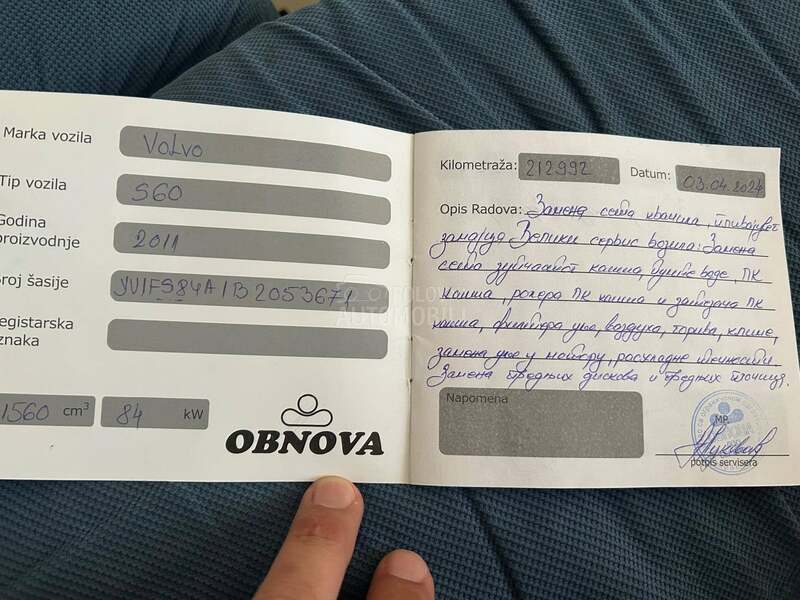 Marka vozila VOLVO
Tip vozila S60
Godina proizvodnje 2011
Broj šasije YV1FS84A1B2053671
Registarska
znaka
1560 cm³ 84 kW
OBNOVA
POLOVNI AUTOMOBILI
Kilometraža: 212992 Datum: 03.04.2024
Opis Radova: Замена сета квачила, пливајућег
замајца Велики сервис возила: Замена
сета зупчастог каиша, пумпе воде, ПК
каиша, ролера ПК каиша и затезача ПК
каиша, филтера уље, ваздуха, горива, климе,
замена уље у мотору, расхладне течности.
Замена предњих дискова и предњих плочица.
Napomena
MP.
potpis servisera